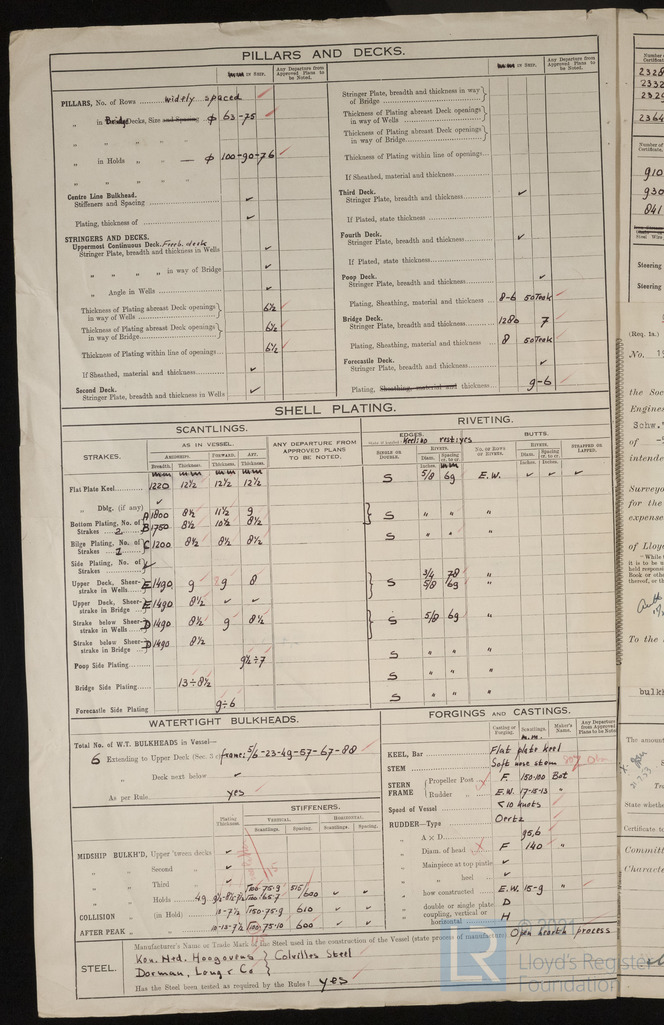 PILLARS AND DECKS.
mm IN SHIP.
Any Departure from Approved Plans to be Noted.
PILLARS, No. of Rows widely spaced
„ in Bridge Decks, Size and Spacing ϕ 63-75
„ in Holds „ — ϕ 100-90-76
Centre Line Bulkhead.
Stiffeners and Spacing ✓
Plating, thickness of ✓
STRINGERS AND DECKS.
Uppermost Continuous Deck. Freeb. deck
Stringer Plate, breadth and thickness in Wells ✓
„ „ „ „ in way of Bridge ✓
„ Angle in Wells ✓
Thickness of Plating abreast Deck openings in way of Wells 6½
Thickness of Plating abreast Deck openings in way of Bridge 6½
Thickness of Plating within line of openings 6½
If Sheathed, material and thickness ✓
Second Deck.
Stringer Plate, breadth and thickness in Wells ✓
mm IN SHIP.
Any Departure from Approved Plans to be Noted.
Stringer Plate, breadth and thickness in way of Bridge
Thickness of Plating abreast Deck openings in way of Wells
Thickness of Plating abreast Deck openings in way of Bridge
Thickness of Plating within line of openings
If Sheathed, material and thickness
Third Deck.
Stringer Plate, breadth and thickness ✓
If Plated, state thickness
Fourth Deck.
Stringer Plate, breadth and thickness ✓
If Plated, state thickness
Poop Deck.
Stringer Plate, breadth and thickness ✓
Plating, Sheathing, material and thickness 8-6 50 Teak
Bridge Deck.
Stringer Plate, breadth and thickness 1280 7
Plating, Sheathing, material and thickness 8 50 Teak
Forecastle Deck.
Stringer Plate, breadth and thickness ✓
Plating, Sheathing, material and thickness 9-6
SHELL PLATING.
SCANTLINGS.
RIVETING.
STRAKES.
AS IN VESSEL.
AMIDSHIPS. FORWARD. AFT.
Breadth Thickness. Thickness. Thickness.
mm mm mm mm
ANY DEPARTURE FROM APPROVED PLANS TO BE NOTED.
EDGES.
SINGLE OR DOUBLE.
RIVETS.
Diam. Spacing cr. to cr.
Inches. mm
BUTTS.
NO. OF ROWS OF RIVETS.
RIVETS.
Diam. Spacing cr. to cr.
Inches. Inches.
STRAPPED OR LAPPED.
Flat Plate Keel 1220 12½ 12½ 12½ S 5/8 69 E.W. ✓ ✓ ✓
„ Dblg. (if any) ✓
Bottom Plating, No. of Strakes 2
A 1800 8½ 11½ 9 S „ „ „
B 1750 8½ 10½ 8½
Bilge Plating, No. of Strakes 1 C 1200 8½ 8½ 8½ S „ „ „
Side Plating, No. of Strakes ✓
Upper Deck, Sheerstrake in Wells E 1490 9 9 8 S 3/4 78 „
5/8 69 „
Upper Deck, Sheerstrake in Bridge E 1490 8½ ✓ ✓
Strake below Sheerstrake in Wells D 1490 8½ 9 8½ S 5/8 69 „
Strake below Sheerstrake in Bridge D 1490 8½
Poop Side Plating 9½÷7 S „ „ „
Bridge Side Plating 13÷8½ S „ „ „
Forecastle Side Plating 9÷6 S „ „ „
WATERTIGHT BULKHEADS.
Total No. of W.T. BULKHEADS in Vessel—
6 Extending to Upper Deck frame: 5/6-23-49-57-67-88
„ Deck next below ✓
As per Rule yes
Plating Thickness.
STIFFENERS.
VERTICAL. HORIZONTAL.
Scantlings. Spacing. Scantlings. Spacing.
MIDSHIP BULKH'D, Upper 'tween decks ✓
„ „ Second „ ✓
„ „ Third „ ✓
„ „ Holds 600 ✓ ✓
COLLISION „ (in Hold) 10-7½ 150-75-9 610 ✓ ✓
AFTER PEAK „ „ 600 ✓ ✓
FORGINGS AND CASTINGS.
Casting or Forging.
Scantlings.
m.m.
Maker's Name.
Any Departure from Approved Plans to be Noted
KEEL, Bar Flat plate keel
STEM Soft nose stem
STERN FRAME
Propeller Post F. 150-100 Bot
Rudder „ E.W. 17-15-13 „
Speed of Vessel <10 knots
RUDDER—Type Oertz
„ A x D 95,6
„ Diam. of head F 140 „
„ Mainpiece at top pintle ✓
„ „ heel ✓
„ how constructed E.W. 15-9 „
„ double or single plate D
„ coupling, vertical or horizontal H
STEEL.
Manufacturer's Name or Trade Mark of the Steel used in the construction of the Vessel (state process of manufacture) Open hearth process
Kon. Ned. Hoogovens } Colvilles Steel
Dorman, Long & Co }
Has the Steel been tested as required by the Rules? yes
LR
© 2021
Lloyd's Register
Foundation
Number of Certificate
2328
2332
2364
Number of Certificate.
910
930
841
Steel Wire
Steering
Steering
(Req. 1a.)
No.
the Soc
Engine
Schw.
of
intende
Surveyo
for the
expense
of Lloy
"While
it is to be
held respons
Book or othe
thereof, or th
To the
bulkh
The amoun
State whethe
Certificate
Committ
Characte